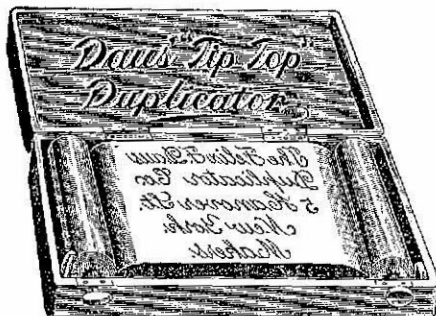 Daus' "Tip Top"
Duplicator
The Felix F. Daus
Duplicator Co
5 Hanover St.
New York.
Makers.